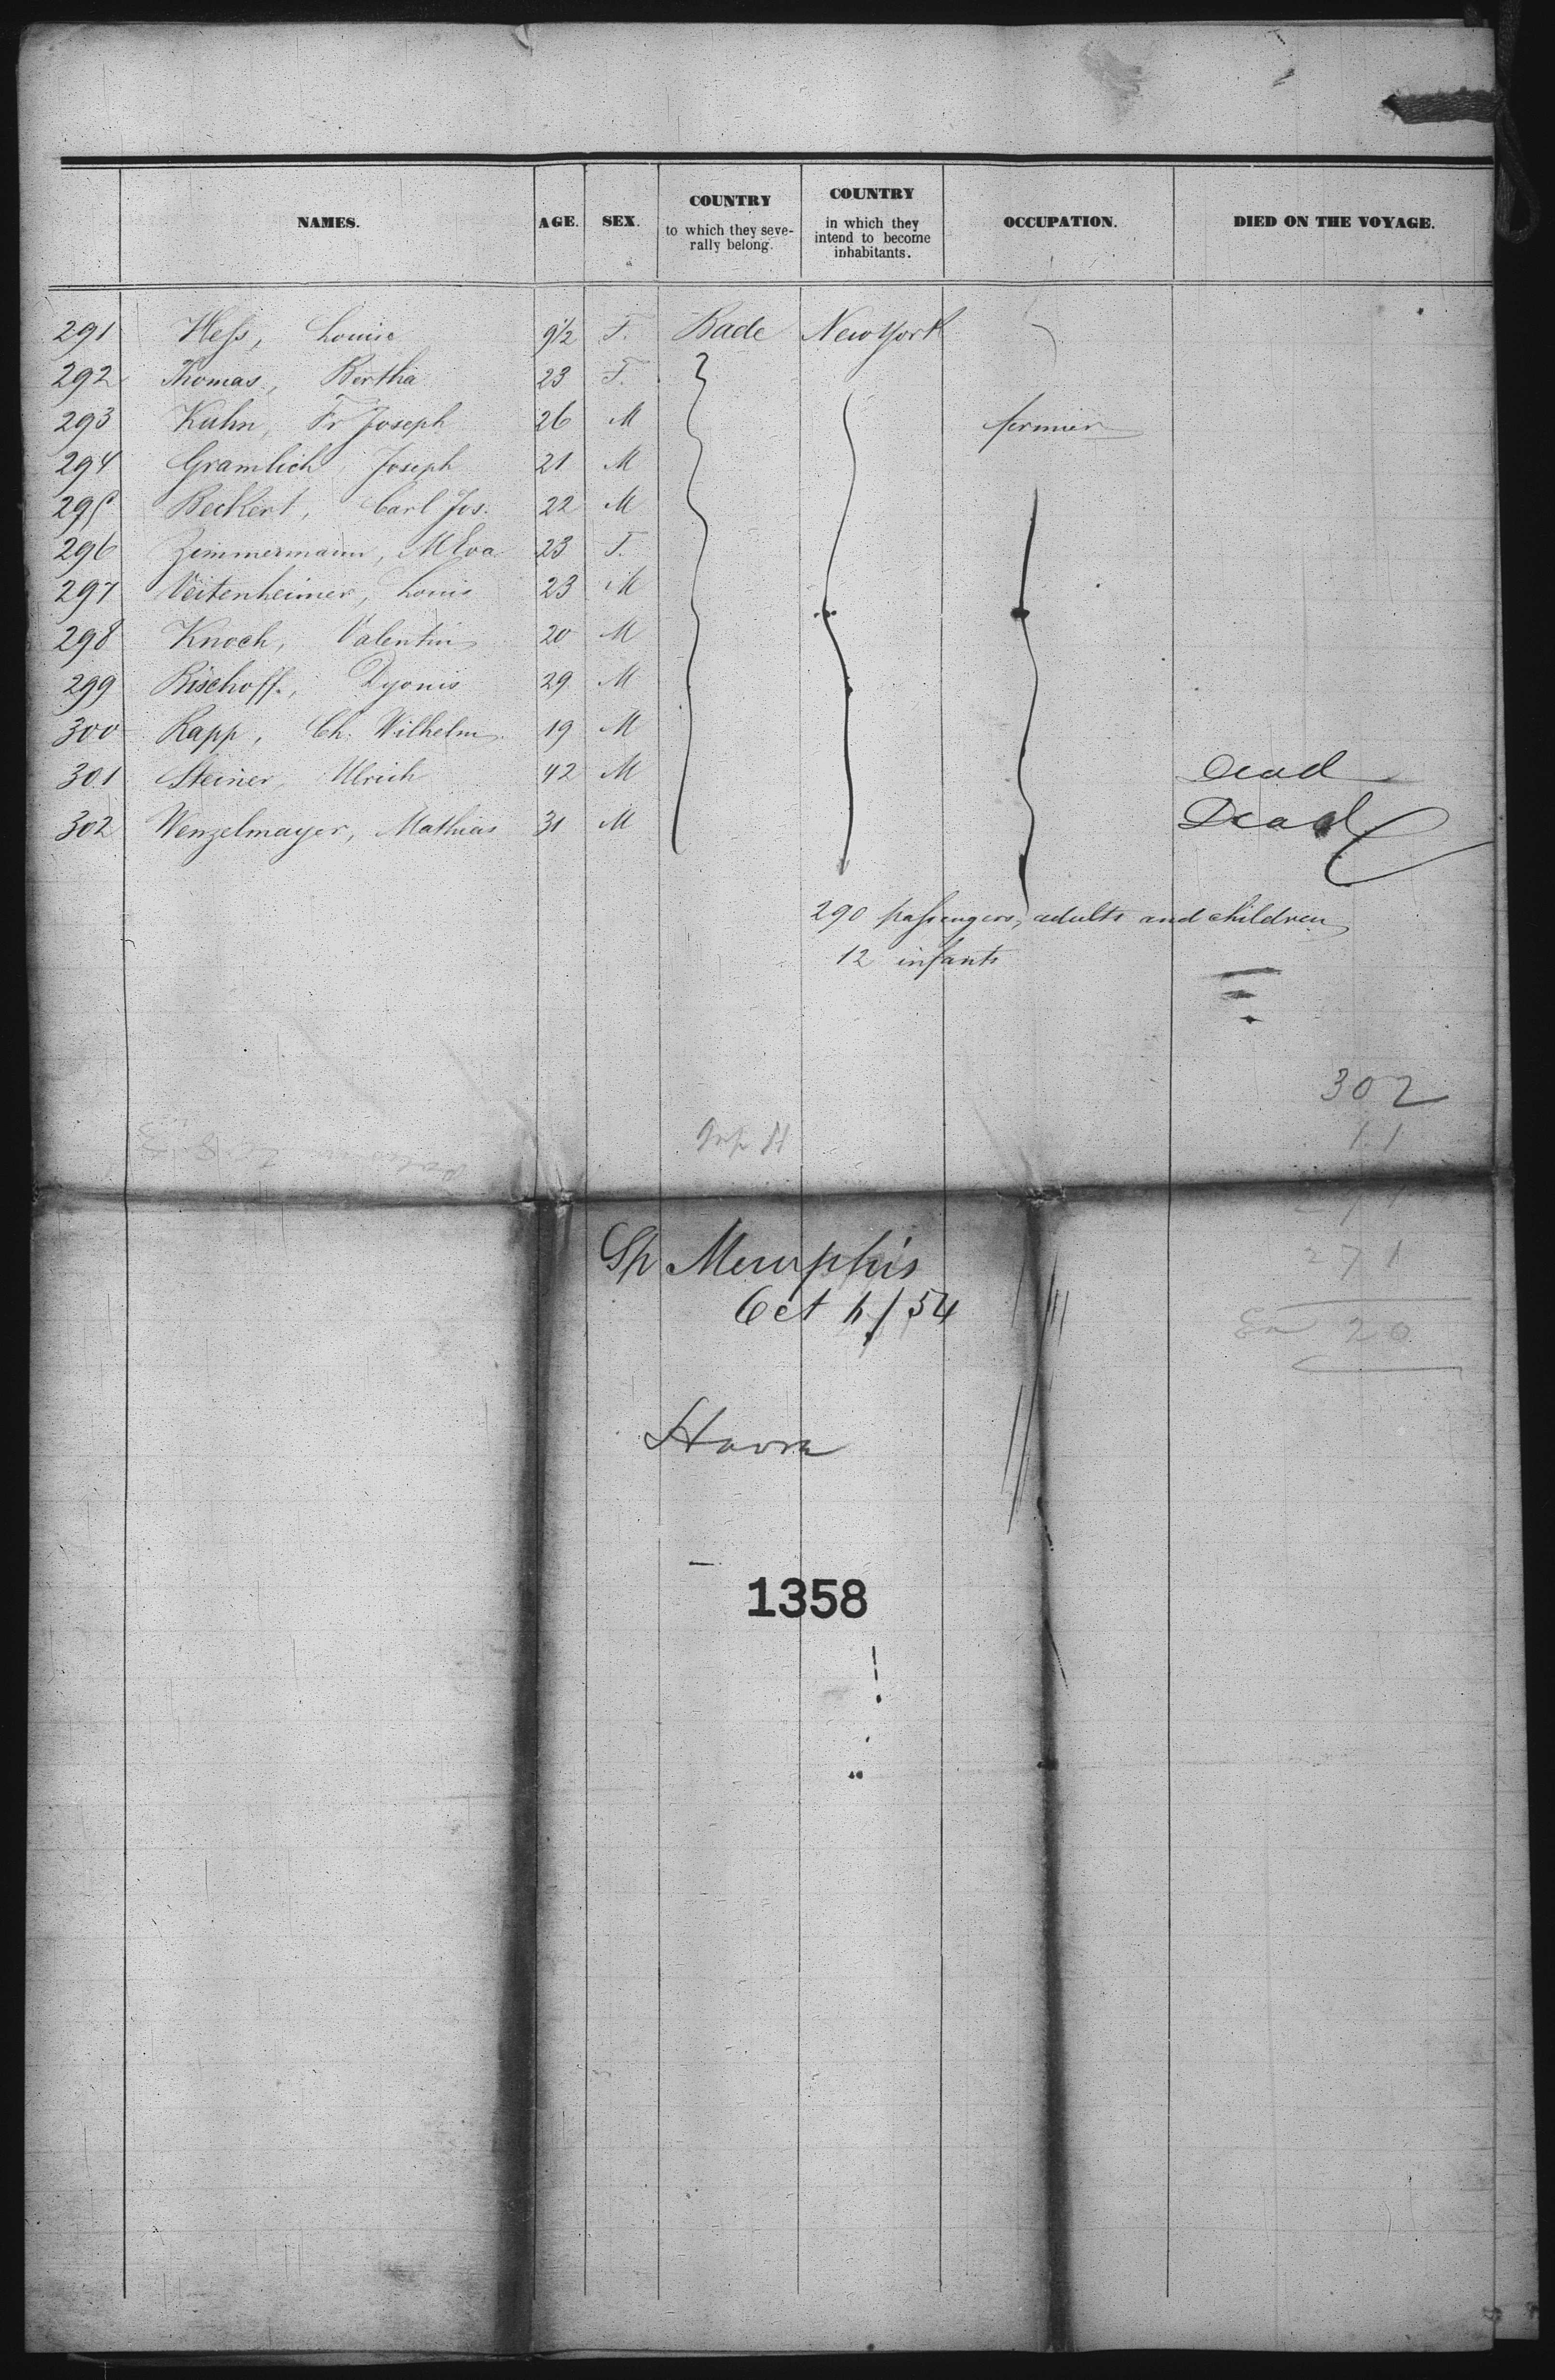 NAMES. AGE. SEX. COUNTRY to which they seve-rally belong. COUNTRY in which they intend to become inhabitants. OCCUPATION. DIED ON THE VOYAGE.
291 Hess, Louise 9 1/2 F. Bade New York
292 Thomas, Bertha 23 F.
293 Kuhn, Fr Joseph 26 M fermier
294 Gramlich, Joseph 21 M
295 Beckert, Carl Jos. 22 M
296 Zimmermann, M Eva 23 F.
297 Veitenheimer, Louis 23 M
298 Knoch, Valentin 20 M
299 Bischoff, Dyonis 29 M
300 Rapp, Ch. Wilhelm 19 M
301 Steiner, Ulrich 42 M Dead
302 Wenzelmayer, Mathias 31 M Dead
290 passengers, adults and children
12 infants
302
11
271
20
Sp Memphis
Oct 4/54
Havre
1358